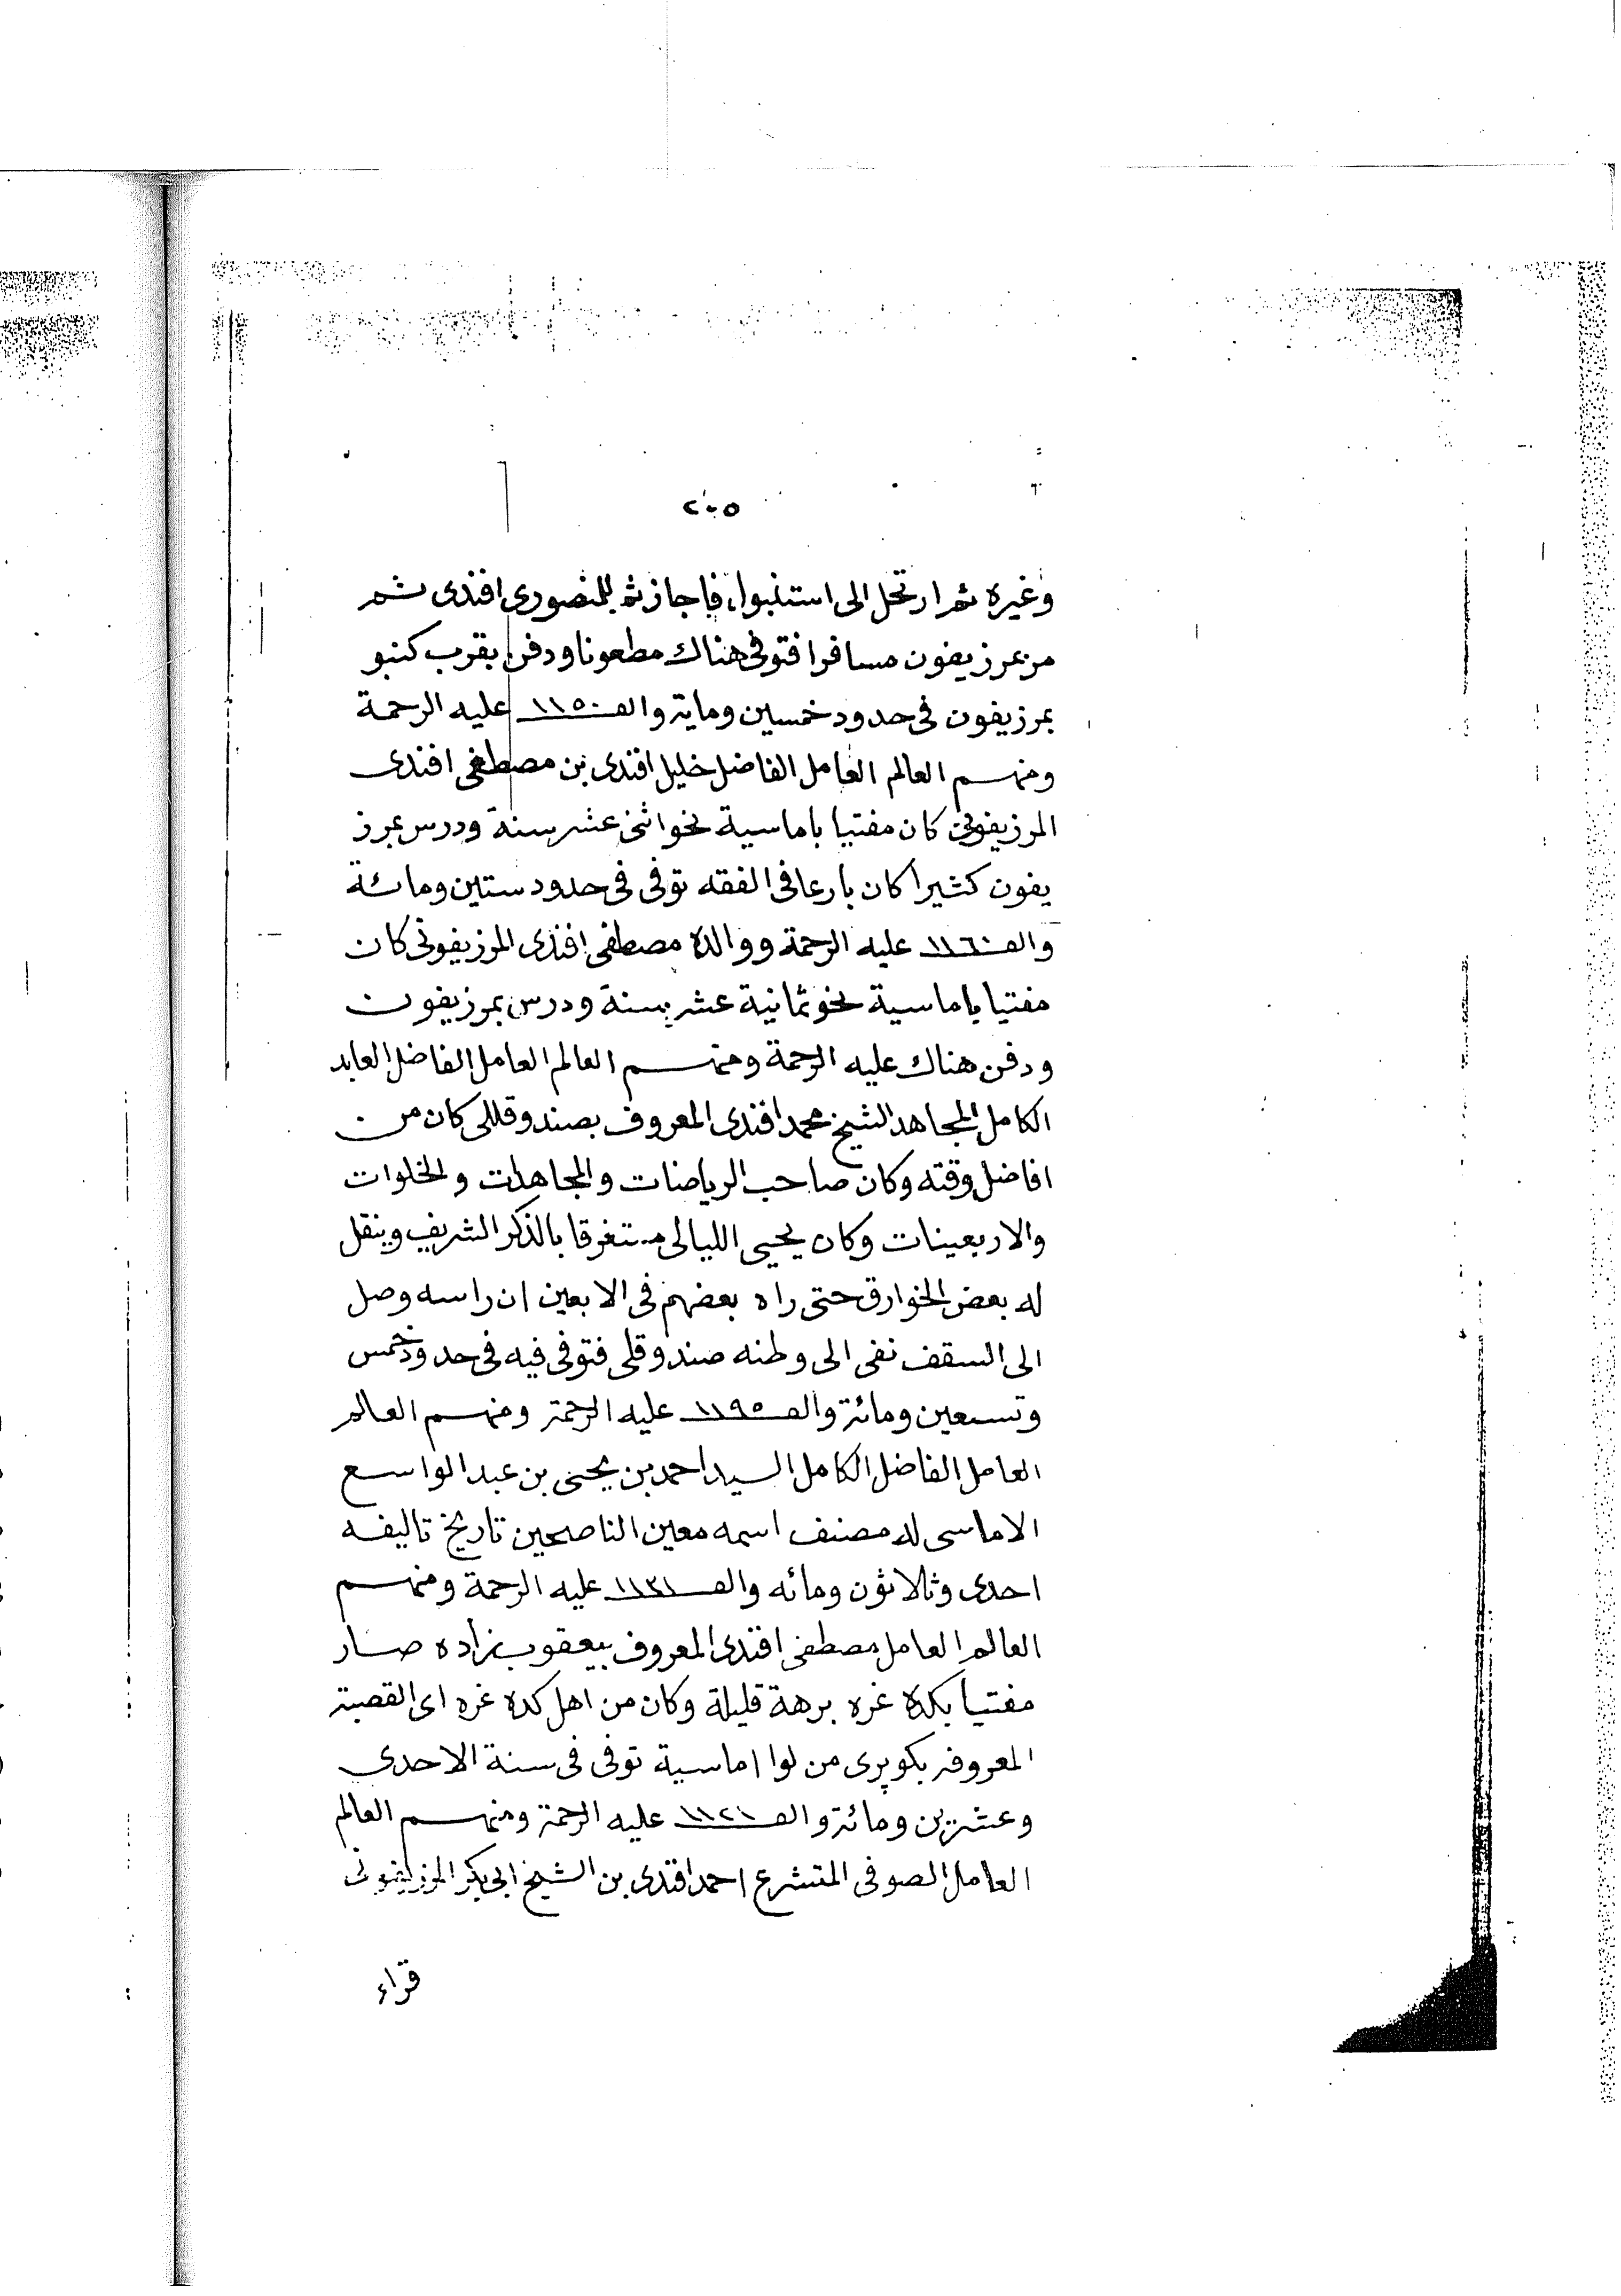 ٢٠٥
وغيره ثم ارتحل الى استنبول فاجاز ثمه المنصورى افندى ثم
مر بمرزيفون مسافرا فتوفى هناك مطعونا ودفن بقرب كنبو
بمرزيفون فى حدود خمسين وماية والف ١١٥٠ عليه الرحمة
ومنهم العالم العامل الفاضل خليل افندى بن مصطفى افندى
المرزيفونى كان مفتيا باماسية نحو اثنى عشر سنة ودرس بمرز
يفون كثيرا كان بارعا فى الفقه توفى فى حدود ستين ومائة
والف ١١٦٠ عليه الرحمة ووالده مصطفى افندى المرزيفونى كان
مفتيا باماسية نحو ثمانية عشر سنة ودرس بمرزيفون
ودفن هناك عليه الرحمة ومنهم العالم العامل الفاضل العابد
الكامل المجاهد الشيخ محمد افندى المعروف بصندوقللى كان من
افاضل وقته وكان صاحب الرياضات والمجاهدات والخلوات
والاربعينات وكان يحيى الليالى مستغرقا بالذكر الشريف وينقل
له بعض الخوارق حتى راه بعضهم فى الابعين ان راسه وصل
الى السقف نفى الى وطنه صندوقلى فتوفى فيه فى حدود خمس
وتسعين ومائة والف ١١٩٥ عليه الرحمة ومنهم العالم
العامل الفاضل الكامل السيد احمد بن يحيى بن عبد الواسع
الاماسى له مصنف اسمه معين الناصحين تاريخ تاليفه
احدى وثلاثون ومائه والف ١١٣١ عليه الرحمة ومنهم
العالم العامل مصطفى افندى المعروف بيعقوب زاده صار
مفتيا بكده غره برهة قليلة وكان من اهل كده غره اى القصبة
المعروفه بكوپرى من لوا اماسية توفى فى سنة الاحدى
وعشرين ومائة والف ١١٢١ عليه الرحمة ومنهم العالم
العامل الصوفى المتشرع احمد افندى بن الشيخ ابى بكر المرزيفونى
قراء